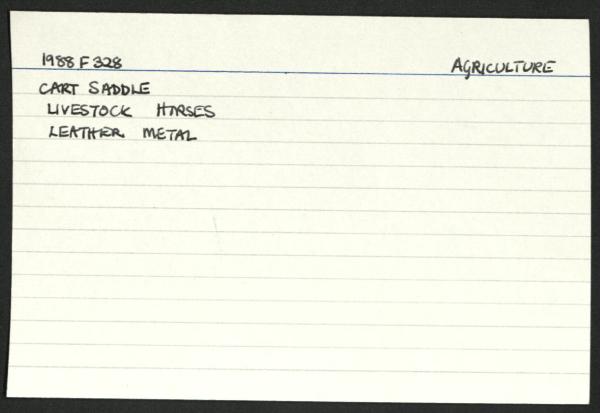 1988 F 328 AGRICULTURE
CART SADDLE
LIVESTOCK HORSES
LEATHER METAL